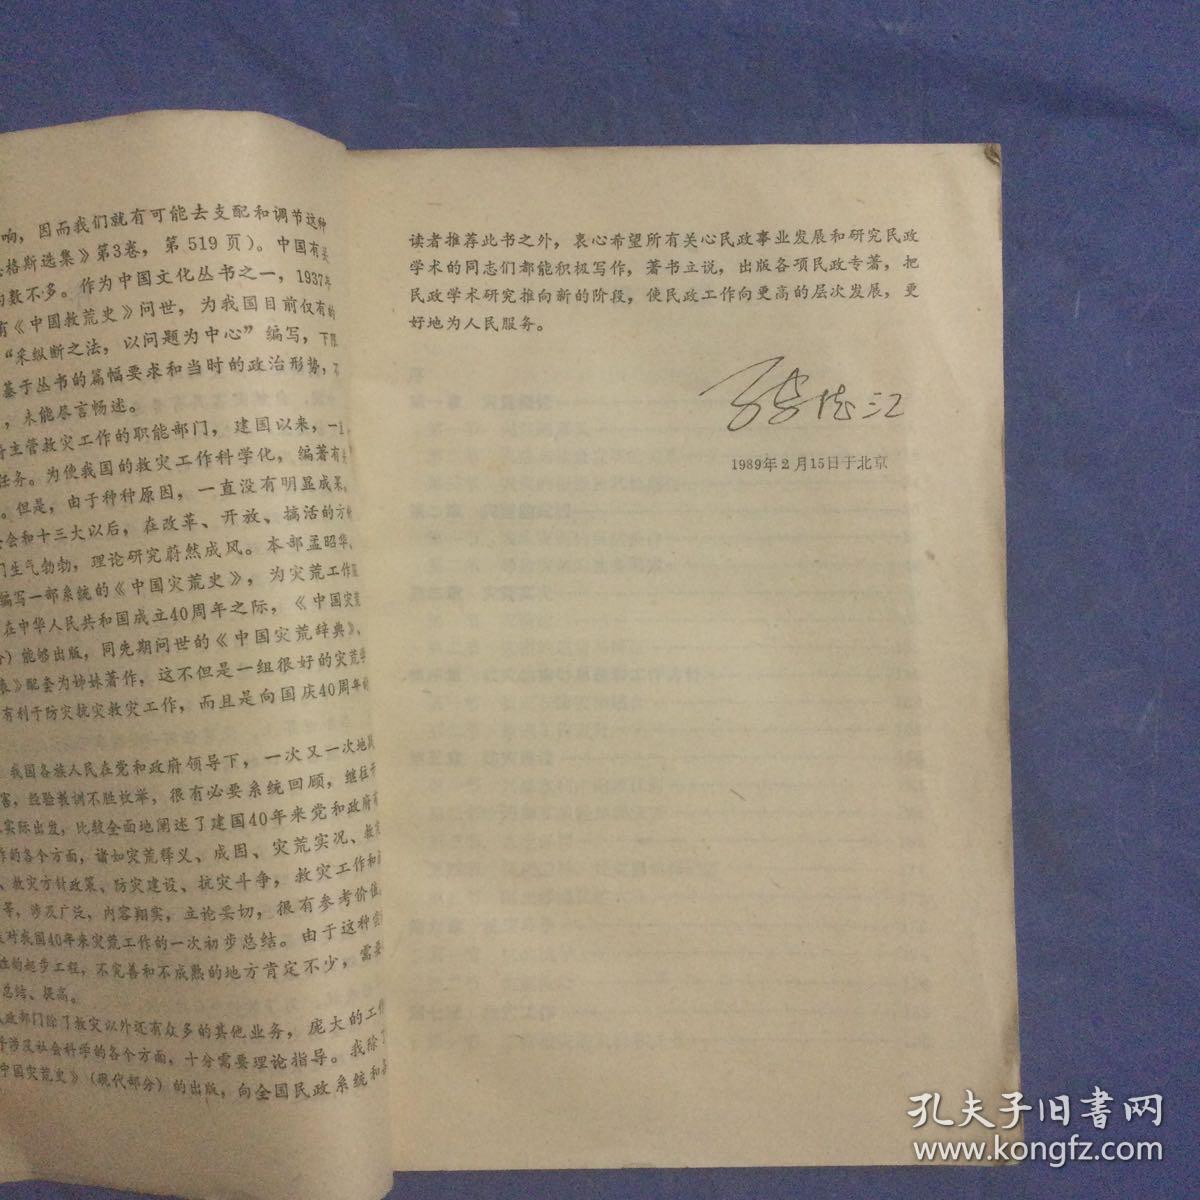 响，因而我们就有可能去支配和调节这种
格斯选集》第3卷，第519页）。中国有关
数不多。作为中国文化丛书之一，1937年
有《中国救荒史》问世，为我国目前仅有的
“采纵断之法，以问题为中心”编写，下限
基于丛书的篇幅要求和当时的政治形势，不
，未能尽言畅述。
主管救灾工作的职能部门，建国以来，一直
任务。为使我国的救灾工作科学化，编著有关
。但是，由于种种原因，一直没有明显成果。
会和十三大以后，在改革、开放、搞活的方针
门生气勃勃，理论研究蔚然成风。本部孟昭华、
编写一部系统的《中国灾荒史》，为灾荒工作
在中华人民共和国成立40周年之际，《中国灾荒
）能够出版，同先期问世的《中国灾荒辞典》、
表》配套为姊妹著作，这不但是一组很好的灾荒学
有利于防灾抗灾救灾工作，而且是向国庆40周年的
我国各族人民在党和政府领导下，一次又一次地战
害，经验教训不胜枚举，很有必要系统回顾，继往开
实际出发，比较全面地阐述了建国40年来党和政府有
作的各个方面，诸如灾荒释义、成因、灾荒实况、救荒
、救灾方针政策、防灾建设、抗灾斗争，救灾工作和
等，涉及广泛，内容翔实，立论妥切，很有参考价值。
对我国40年来灾荒工作的一次初步总结。由于这种
性的起步工程，不完善和不成熟的地方肯定不少，需要
总结、提高。
政部门除了救灾以外还有众多的其他业务，庞大的工作
涉及社会科学的各个方面，十分需要理论指导。我除了
中国灾荒史》（现代部分）的出版，向全国民政系统和
读者推荐此书之外，衷心希望所有关心民政事业发展和研究民政
学术的同志们都能积极写作，著书立说，出版各项民政专著，把
民政学术研究推向新的阶段，使民政工作向更高的层次发展，更
好地为人民服务。
张德江
1989年2月15日于北京
孔夫子旧书网
www.kongfz.com